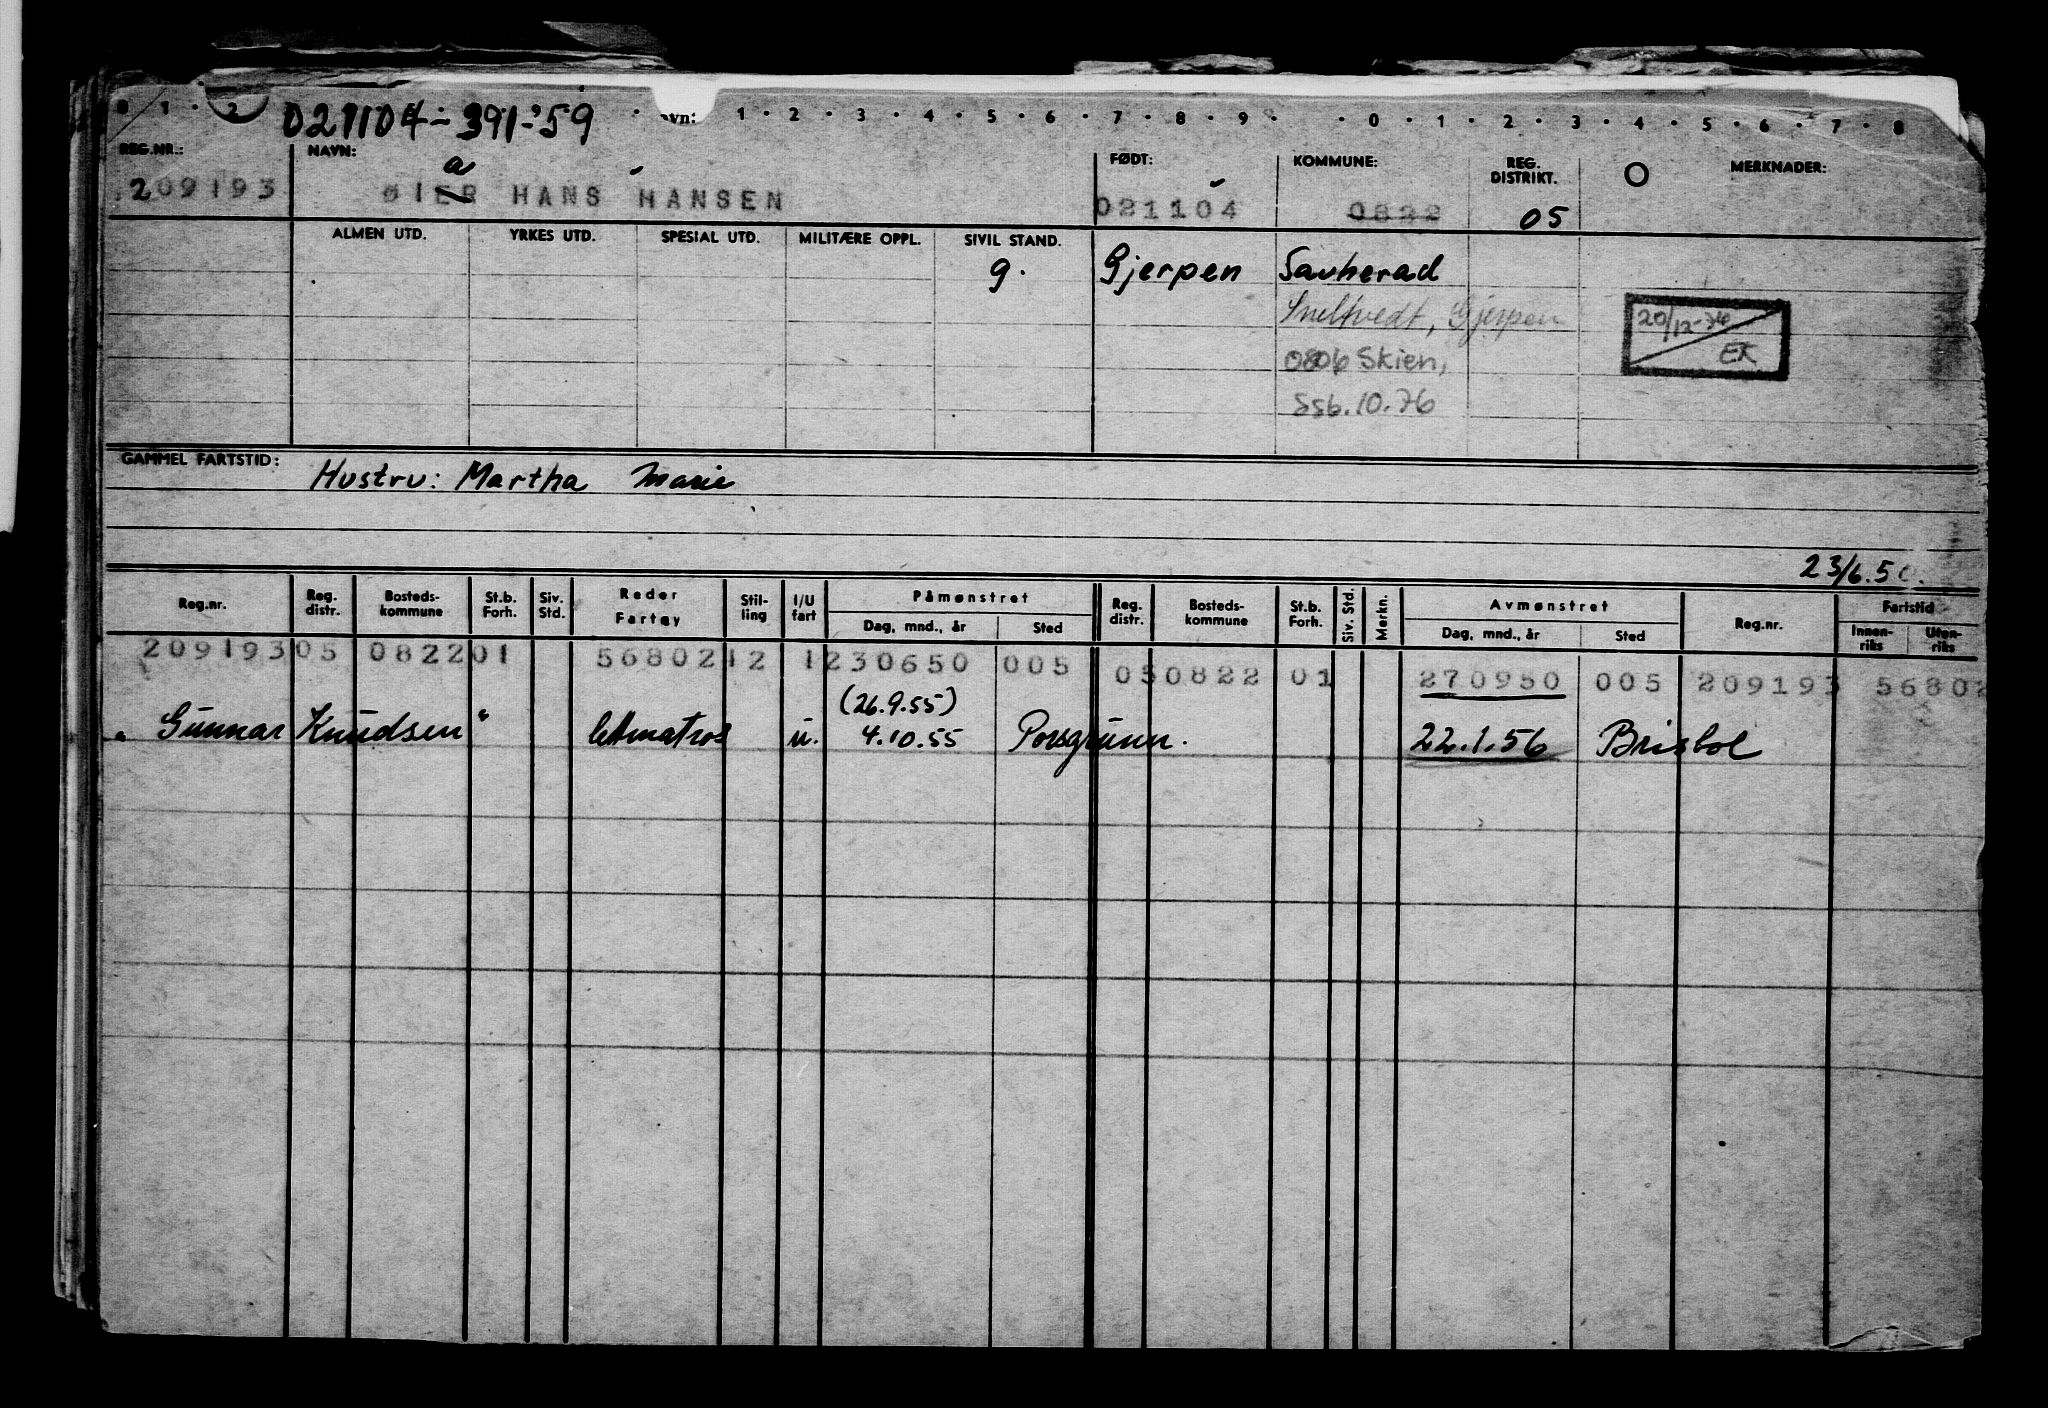 0 1 2 021104-391-'59 vn: 1 2 3 4 5 6 7 8 9 0 1 2 3 4 5 6 7 8
REG.NR.: NAVN: FØDT: KOMMUNE: REG. DISTRIKT. MERKNADER:
a
209193 ØIER HANS HANSEN 021104 0822 05
ALMEN UTD. YRKES UTD. SPESIAL UTD. MILITÆRE OPPL. SIVIL STAND.
g. Gjerpen Sauherad
Sneltvedt, Gjerpen
20/12-76
0806 Skien, EK
SSb.10.76
GAMMEL FARTSTID: Hustru: Martha Marie
23/6.50.
Reg.nr. Reg. distr. Bosteds-kommune St.b. Forh. Siv. Std. Reder Fartøy Stil-ling I/U fart Påmønstret Reg. distr. Bosteds-kommune St.b. Forh. Siv. Std. Merkn. Avmønstret Reg.nr. Fartstid
Dag, mnd., år Sted Dag, mnd., år Sted Innen-riks Uten-riks
209193 05 0822 01 56802 12 1 230650 005 05 0822 01 270950 005 209193 56802
(26.9.55)
"Gunnar Knudsen" lettmatros u. 4.10.55 Porsgrunn. 22.1.56 Bristol